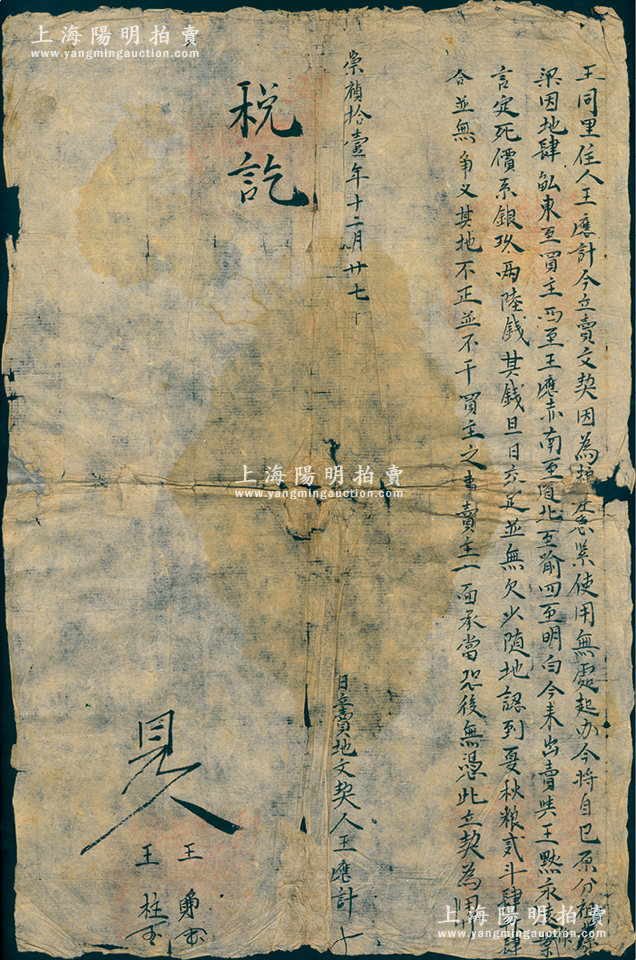 上海陽明拍賣
www.yangmingauction.com
王同里住人王應計今立賣文契因為糧差急緊使用無處起办今將自己原分
梁因地肆畝東至買主西至王應赤南至 北至 四至明白今来出賣與王默永遠
言定死價系銀玖兩陸錢其錢旦日交足並無欠少随地認到夏秋粮貳斗肆升肆
合並無争义其地不正並不干買主之事賣主一面承當恐後無憑此立契為用
崇禎拾壹年十二月廿七
日立賣地文契人王應計十
稅訖
見人
王
王柱
上海陽明拍賣
www.yangmingauction.com
上海陽明拍賣
www.yangmingauction.com